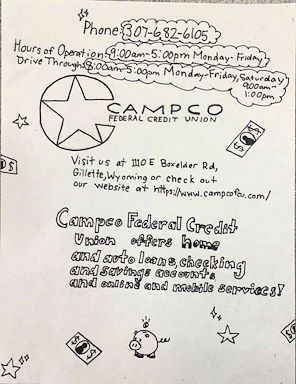 Phone: 307-682-6105
Hours of Operation: 9:00am-5:00pm Monday-Friday
Drive Through: 8:00am-5:00pm Monday-Friday, Saturday
9:00am-
1:00pm
CAMPCO
FEDERAL CREDIT UNION
Visit us at 1110 E Boxelder Rd,
Gillette, Wyoming or check out
our website at https://www.campcofcu.com/
Campco Federal Credit
Union offers home
and auto loans, checking
and savings accounts
and online and mobile services!